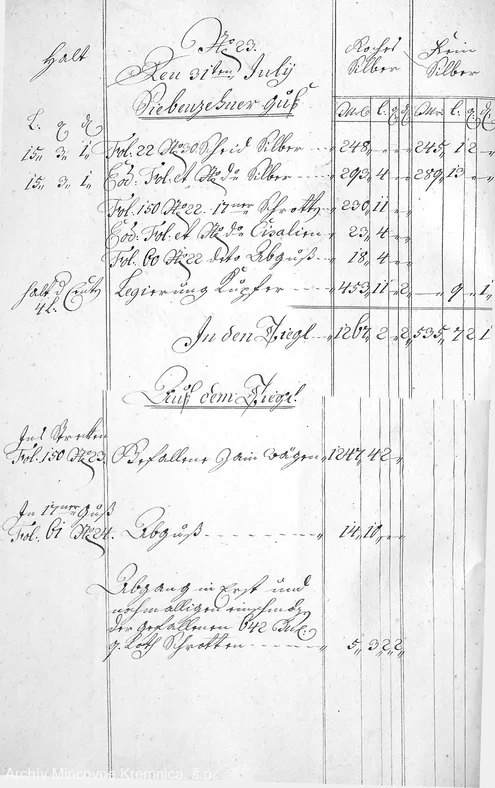 No 23.
Den 31ten July
Siebenzehner Guß
Halt
Roches Silber
Fein Silber
L. q d
M L. q d M L. q d
15,, 3,, 1,, Fol. 22 No 30 Scheid Silber 248,, - - - 245,, 12 -
15,, 3,, 1,, Eod: Fol. et No do Silber 293,, 4 - - 289,, 13 - -
Fol. 150 No 22. 17ner Schrotten 230,, 11 - -
Eod: Fol. et No do Cisalien 23,, 4 - -
Fol. 60 No 22 deto Abguß 18,, 4 - -
Halt d
42. Legierung Kupfer 453,, 11 - 2,, - 9 - 1,,
In den Tiegl 1267,, 2 - 2,, 535,, 7 2 1
Auß dem Tiegl.
Ins Strecken
Fol. 150 No 23. Gefallene Zain wägen 1247,, 4 2 -
In 17ner Guß
Fol. 61 No 24. Abguß 14,, 10 - -
Abgang in Erst und
nochmalligen
der Gefallenen 642
9. Loth Schrotten 5,, 3 2 2,,
Archív Mincovne Kremnica, š.p.